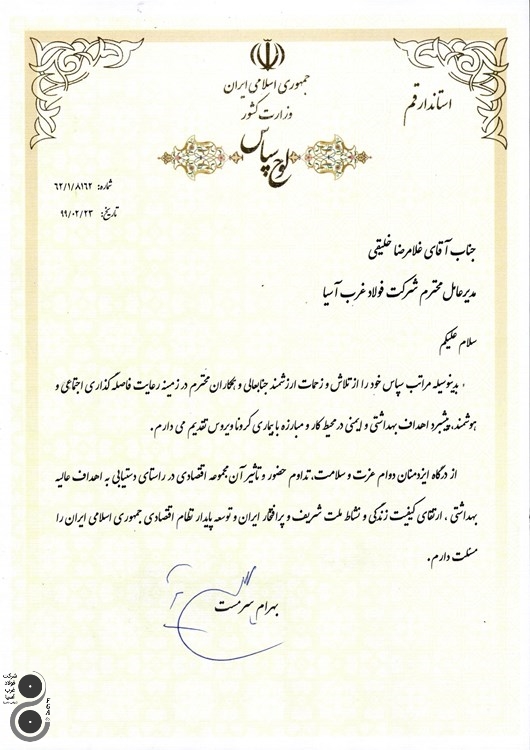 جمهوری اسلامی ایران
وزارت کشور
استاندار قم
لوح سپاس
شماره: ۶۲/۱/۸۱۶۲
تاریخ: ۹۹/۰۲/۲۳
جناب آقای غلامرضا خلیقی
مدیرعامل محترم شرکت فولاد غرب آسیا
سلام علیکم
بدینوسیله مراتب سپاس خود را از تلاش و زحمات ارزشمند جنابعالی و همکاران محترم در زمینه رعایت فاصله گذاری اجتماعی و
هوشمند، پیشبرد اهداف بهداشتی و ایمنی در محیط کار و مبارزه با بیماری کرونا ویروس تقدیم می دارم.
از درگاه ایزدمنان دوام عزت و سلامت، تداوم حضور و تاثیر آن مجموعه اقتصادی در راستای دستیابی به اهداف عالیه
بهداشتی، ارتقای کیفیت زندگی و نشاط ملت شریف و پرافتخار ایران و توسعه پایدار نظام اقتصادی جمهوری اسلامی ایران را
مسئلت دارم.
بهرام سرمست
شرکت
فولاد
غرب
آسیا
FGA